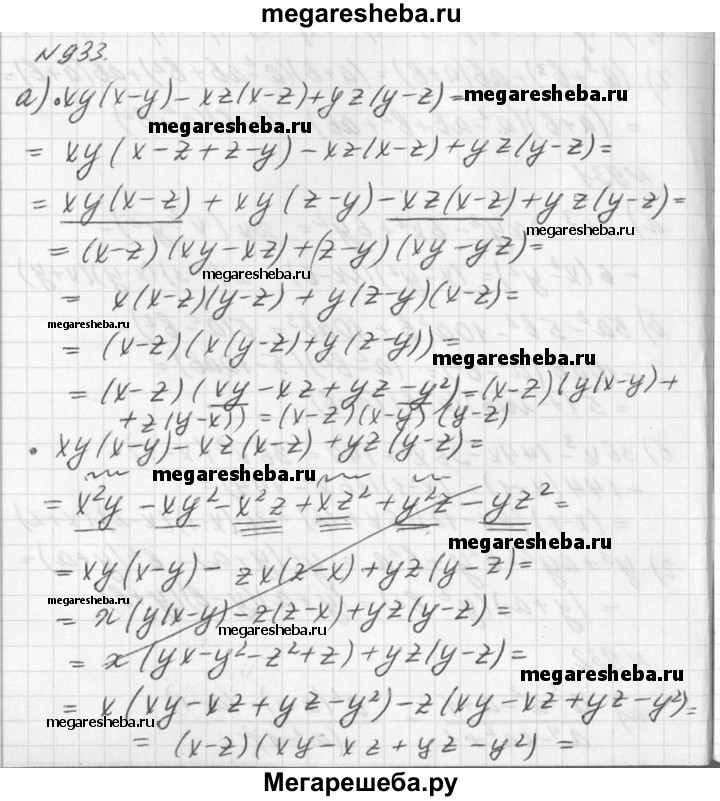 megaresheba.ru
№933.
а) • xy(x-y) - xz(x-z) + yz(y-z) = megaresheba.ru
megaresheba.ru
= xy(x-z+z-y) - xz(x-z) + yz(y-z) =
= xy(x-z) + xy(z-y) - xz(x-z) + yz(y-z) =
megaresheba.ru
= (x-z)(xy-xz) + (z-y)(xy-yz) =
megaresheba.ru
= x(x-z)(y-z) + y(z-y)(x-z) =
megaresheba.ru
= (x-z)(x(y-z)+y(z-y)) =
megaresheba.ru
= (x-z)(xy-xz+yz-y²) = (x-z)(y(x-y)+
+z(y-x)) = (x-z)(x-y)(y-z)
• xy(x-y) - xz(x-z) + yz(y-z) =
megaresheba.ru
= x²y - xy² - x²z + xz² + y²z - yz² =
megaresheba.ru
= xy(x-y) - zx(z-x) + yz(y-z) =
megaresheba.ru
= x(y(x-y)-z(z-x) + yz(y-z) =
megaresheba.ru
= x(yx-y²-z²+z) + yz(y-z) =
megaresheba.ru
= x(xy-xz+yz-y²) - z(xy-xz+yz-y²) =
megaresheba.ru
= (x-z)(xy-xz+yz-y²) =
Мегарешеба.ру